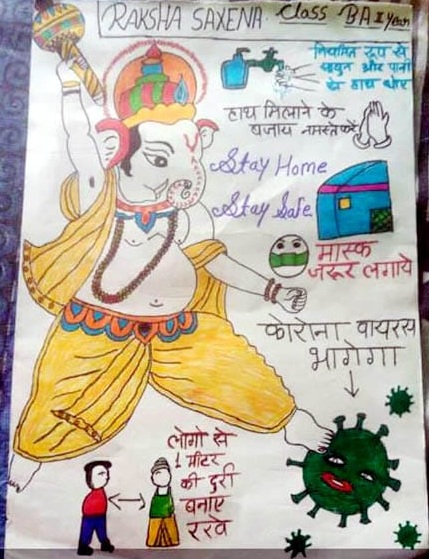 RAKSHA SAXENA. Class BA I Year
नियमित रूप से
साबुन और पानी
से हाथ धोए
हाथ मिलाने के
बजाय नमस्ते करें
Stay Home
Stay Safe
मास्क
जरूर लगाये
कोरोना वायरस
भागेगा
लोगो से
1 मीटर
की दुरी
बनाए
रखे